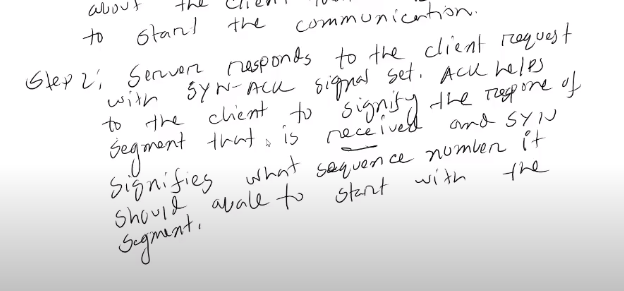 about the
to start the communication.
Step 2: Server responds to the client request
with SYN-ACK signal set. ACK helps
to the client to signify the respone of
segment that is received and SYN
signifies what sequence number it
should avale to start with the
segment.